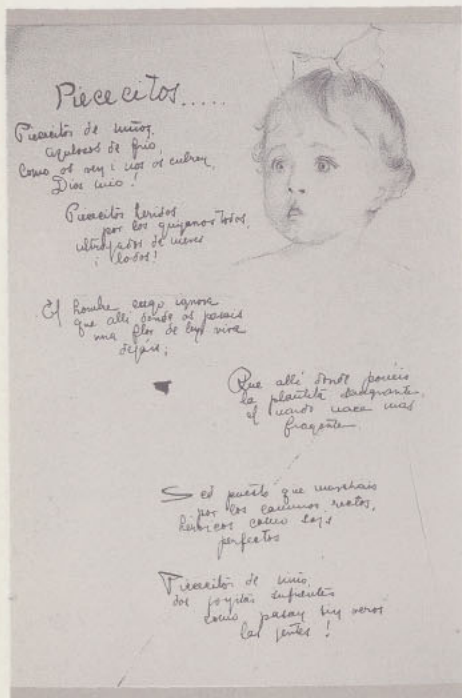 Piececitos.....
Piececitos de niños,
azulosos de frío,
como os ven i nos os cubren,
Dios mío!
Piececitos heridos
por los guijarros todos,
ultrajados de nieves
i lodos!
El hombre ciego ignora
que allí donde os posáis
una flor de luz viva
dejáis;
Que allí donde ponéis
la plantita sangrante,
el nardo nace mas
fragante
Sed puesto que marchais
por los caminos rectos,
heroicos como sois
perfectos
Piececitos de niño,
dos joyitas sufrientes
como pasan sin veros
las jentes!